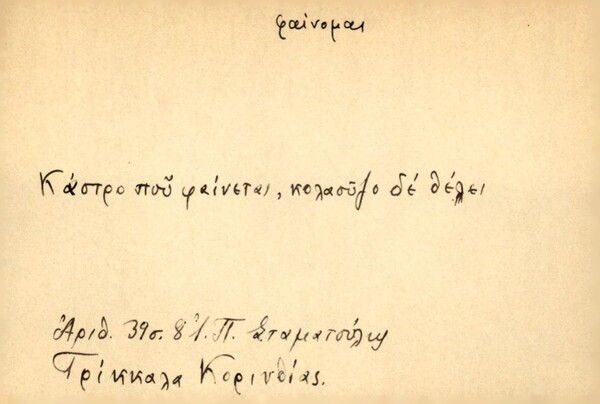 φαίνομαι
Κάστρο ποῦ φαίνεται, κολαοῦζο δέ θέλει
Ἀριθ. 39 σ. 8 Π. Σταματούλης
Τρίκκαλα Κορινθίας.